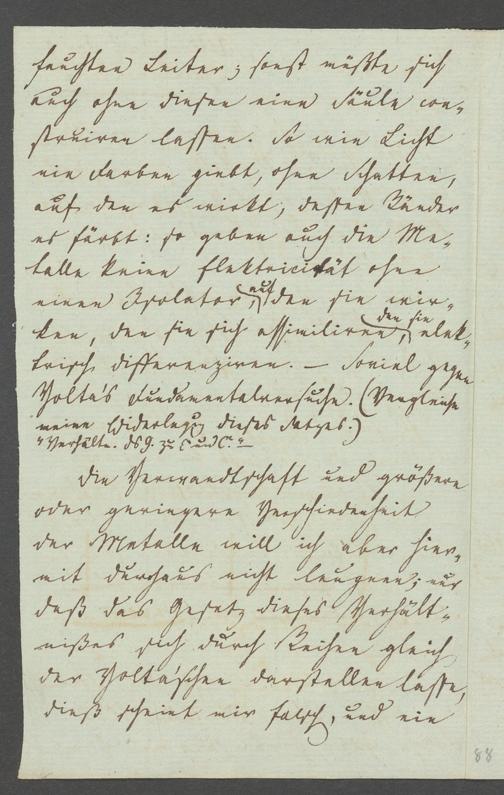 feuchten Leiter; sonst müßte sich
auch ohne diesen eine Säule con-
struiren lassen. So wie Licht
nie Farben giebt, ohne Schatten,
auf den es wirkt, dessen Ränder
es färbt: so geben auch die Me-
talle keine Elektricität ohne
einen Isolator, auf den sie wir-
ken, den sie sich assimiliren, den sie elek-
trisch differenziren. — Soviel gegen
Volta's Fundamentalversuche. (Vergleiche
meine Widerlegung dieses Satzes.)
"Verhältn. ds 9. zu C und C."
Die Verwandtschaft und größere
oder geringere Verschiedenheit
der Metalle will ich aber hier-
mit durchaus nicht leugnen; nur
daß das Gesetz dieses Verhält-
nißes sich durch Reihen gleich
der Volta'schen darstellen lasse,
dieß scheint mir falsch, und ein
88